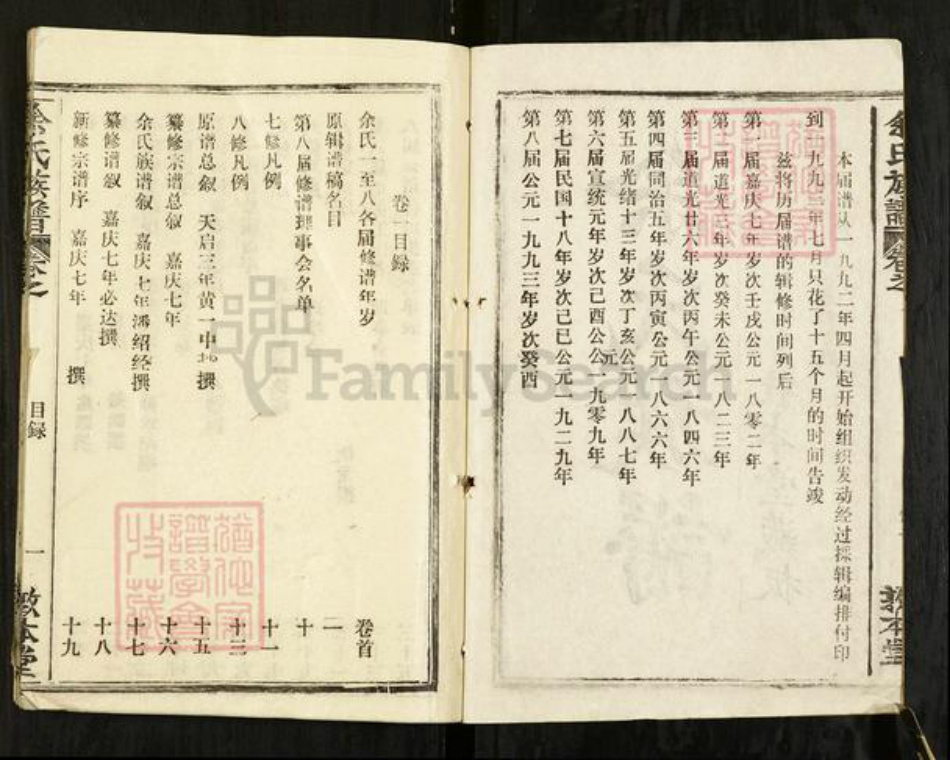 余氏族谱
本届谱从一九九二年四月起开始组织发动经过採辑编排付印
到一九九三年七月只花了十五个月的时间告竣
兹将历届谱的辑修时间列后
第一届嘉庆七年岁次壬戌公元一八零二年
第二届道光三年岁次癸未公元一八二三年
第三届道光廿六年岁次丙午公元一八四六年
第四届同治五年岁次丙寅公元一八六六年
第五届光绪十三年岁次丁亥公元一八八七年
第六届宣统元年岁次己酉公元一九零九年
第七届民国十八年岁次己巳公元一九二九年
第八届公元一九九三年岁次癸酉
卷一目録
余氏一至八各届修谱年岁 卷首
原辑谱稿名目 一
第八届修谱理事会名单 十
七修凡例 十一
八修凡例 十三
原谱总叙 天启三年黄一中 撰 十五
纂修宗谱总叙 嘉庆七年 十六
余氏族谱叙 嘉庆七年潘绍经撰 十七
纂修谱叙 嘉庆七年必达撰 十八
新修宗谱序 嘉庆七年 撰 十九
余氏族譜 卷之
目録
一
敦本堂
FamilySearch